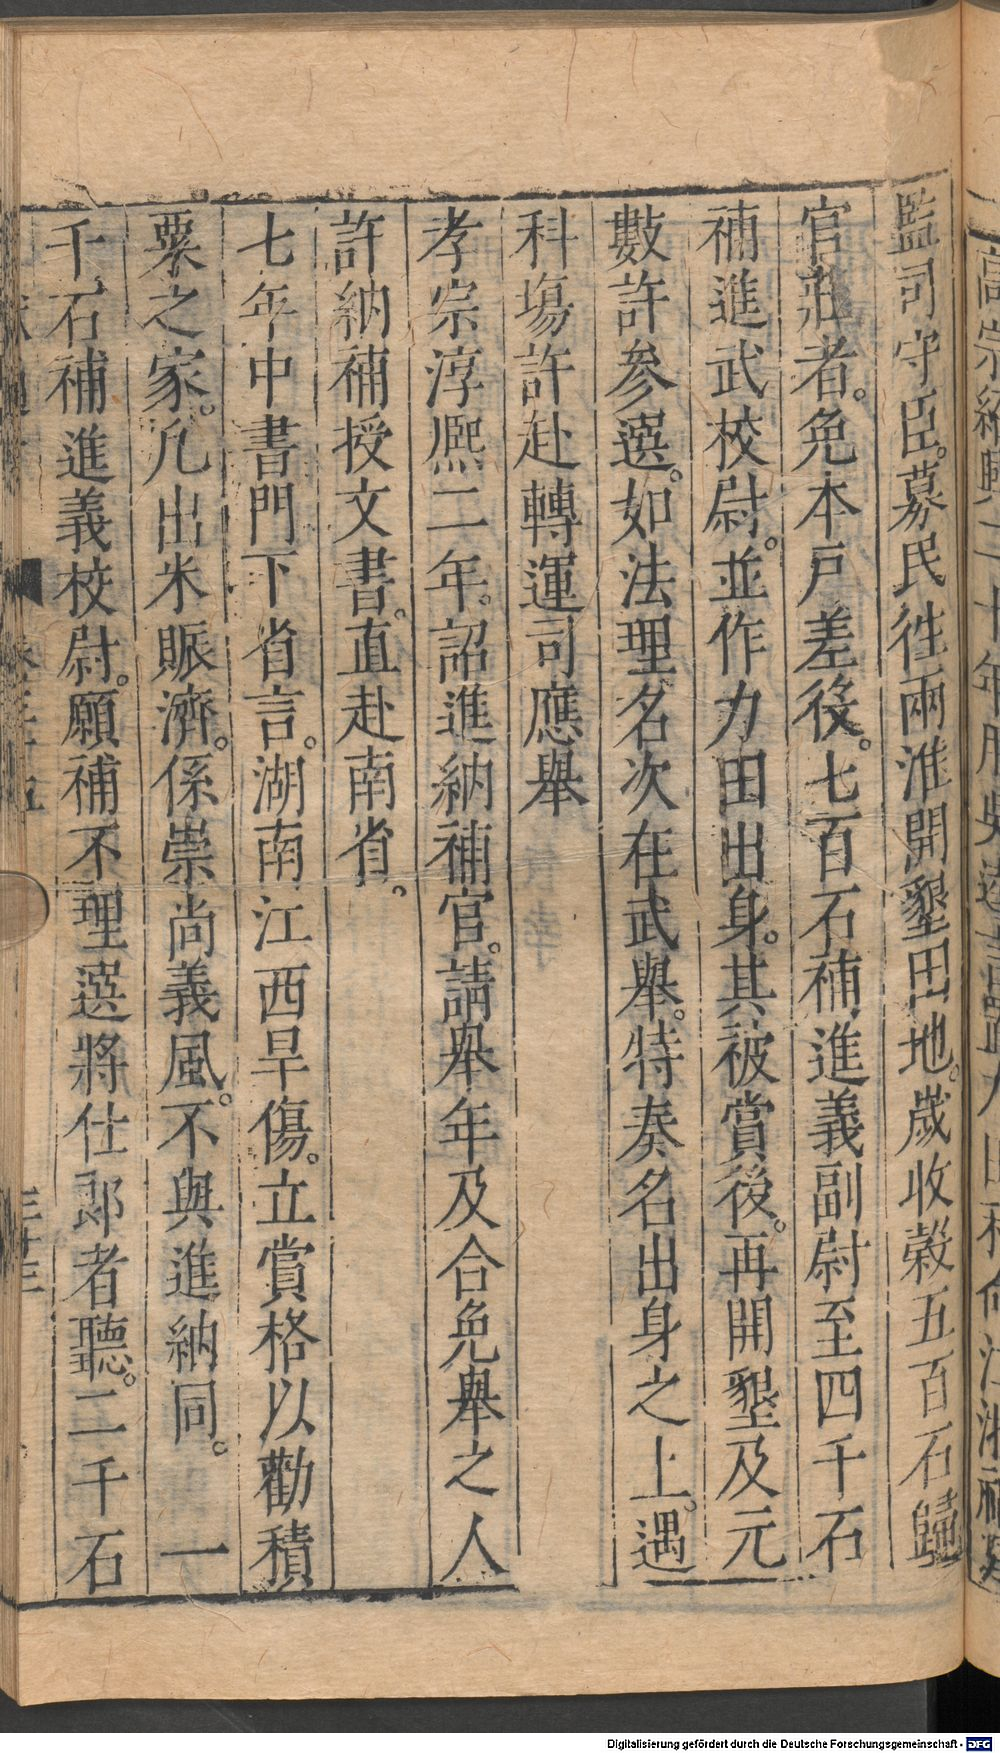 監司守臣。募民徃兩淮開墾田地。歲收榖五百石歸
官莊者。免本戸差役。七百石補進義副尉至四千石
補進武校尉。並作力田出身。其被賞後。再開墾及元
數許参選。如法理名次在武舉。特奏名出身之上。遇
科場許赴轉運司應舉
孝宗淳熈二年。詔進納補官。請舉年及合免舉之人
許納補授文書。直赴南省。
七年中書門下省言。湖南江西旱傷。立賞格以勸積
粟之家。凡出米賑濟。係崇尚義風。不與進納同。一
千石補進義校尉。願補不理選將仕郎者聽。二千石
三十三
Digitalisierung gefördert durch die Deutsche Forschungsgemeinschaft - DFG